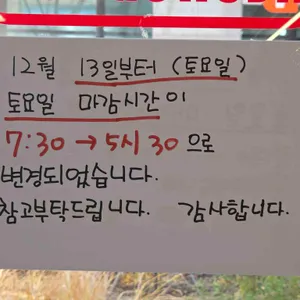 12월 13일부터 (토요일)
토요일 마감시간이
7:30 → 5시 30 으로
변경되었습니다.
참고부탁드립니다. 감사합니다.